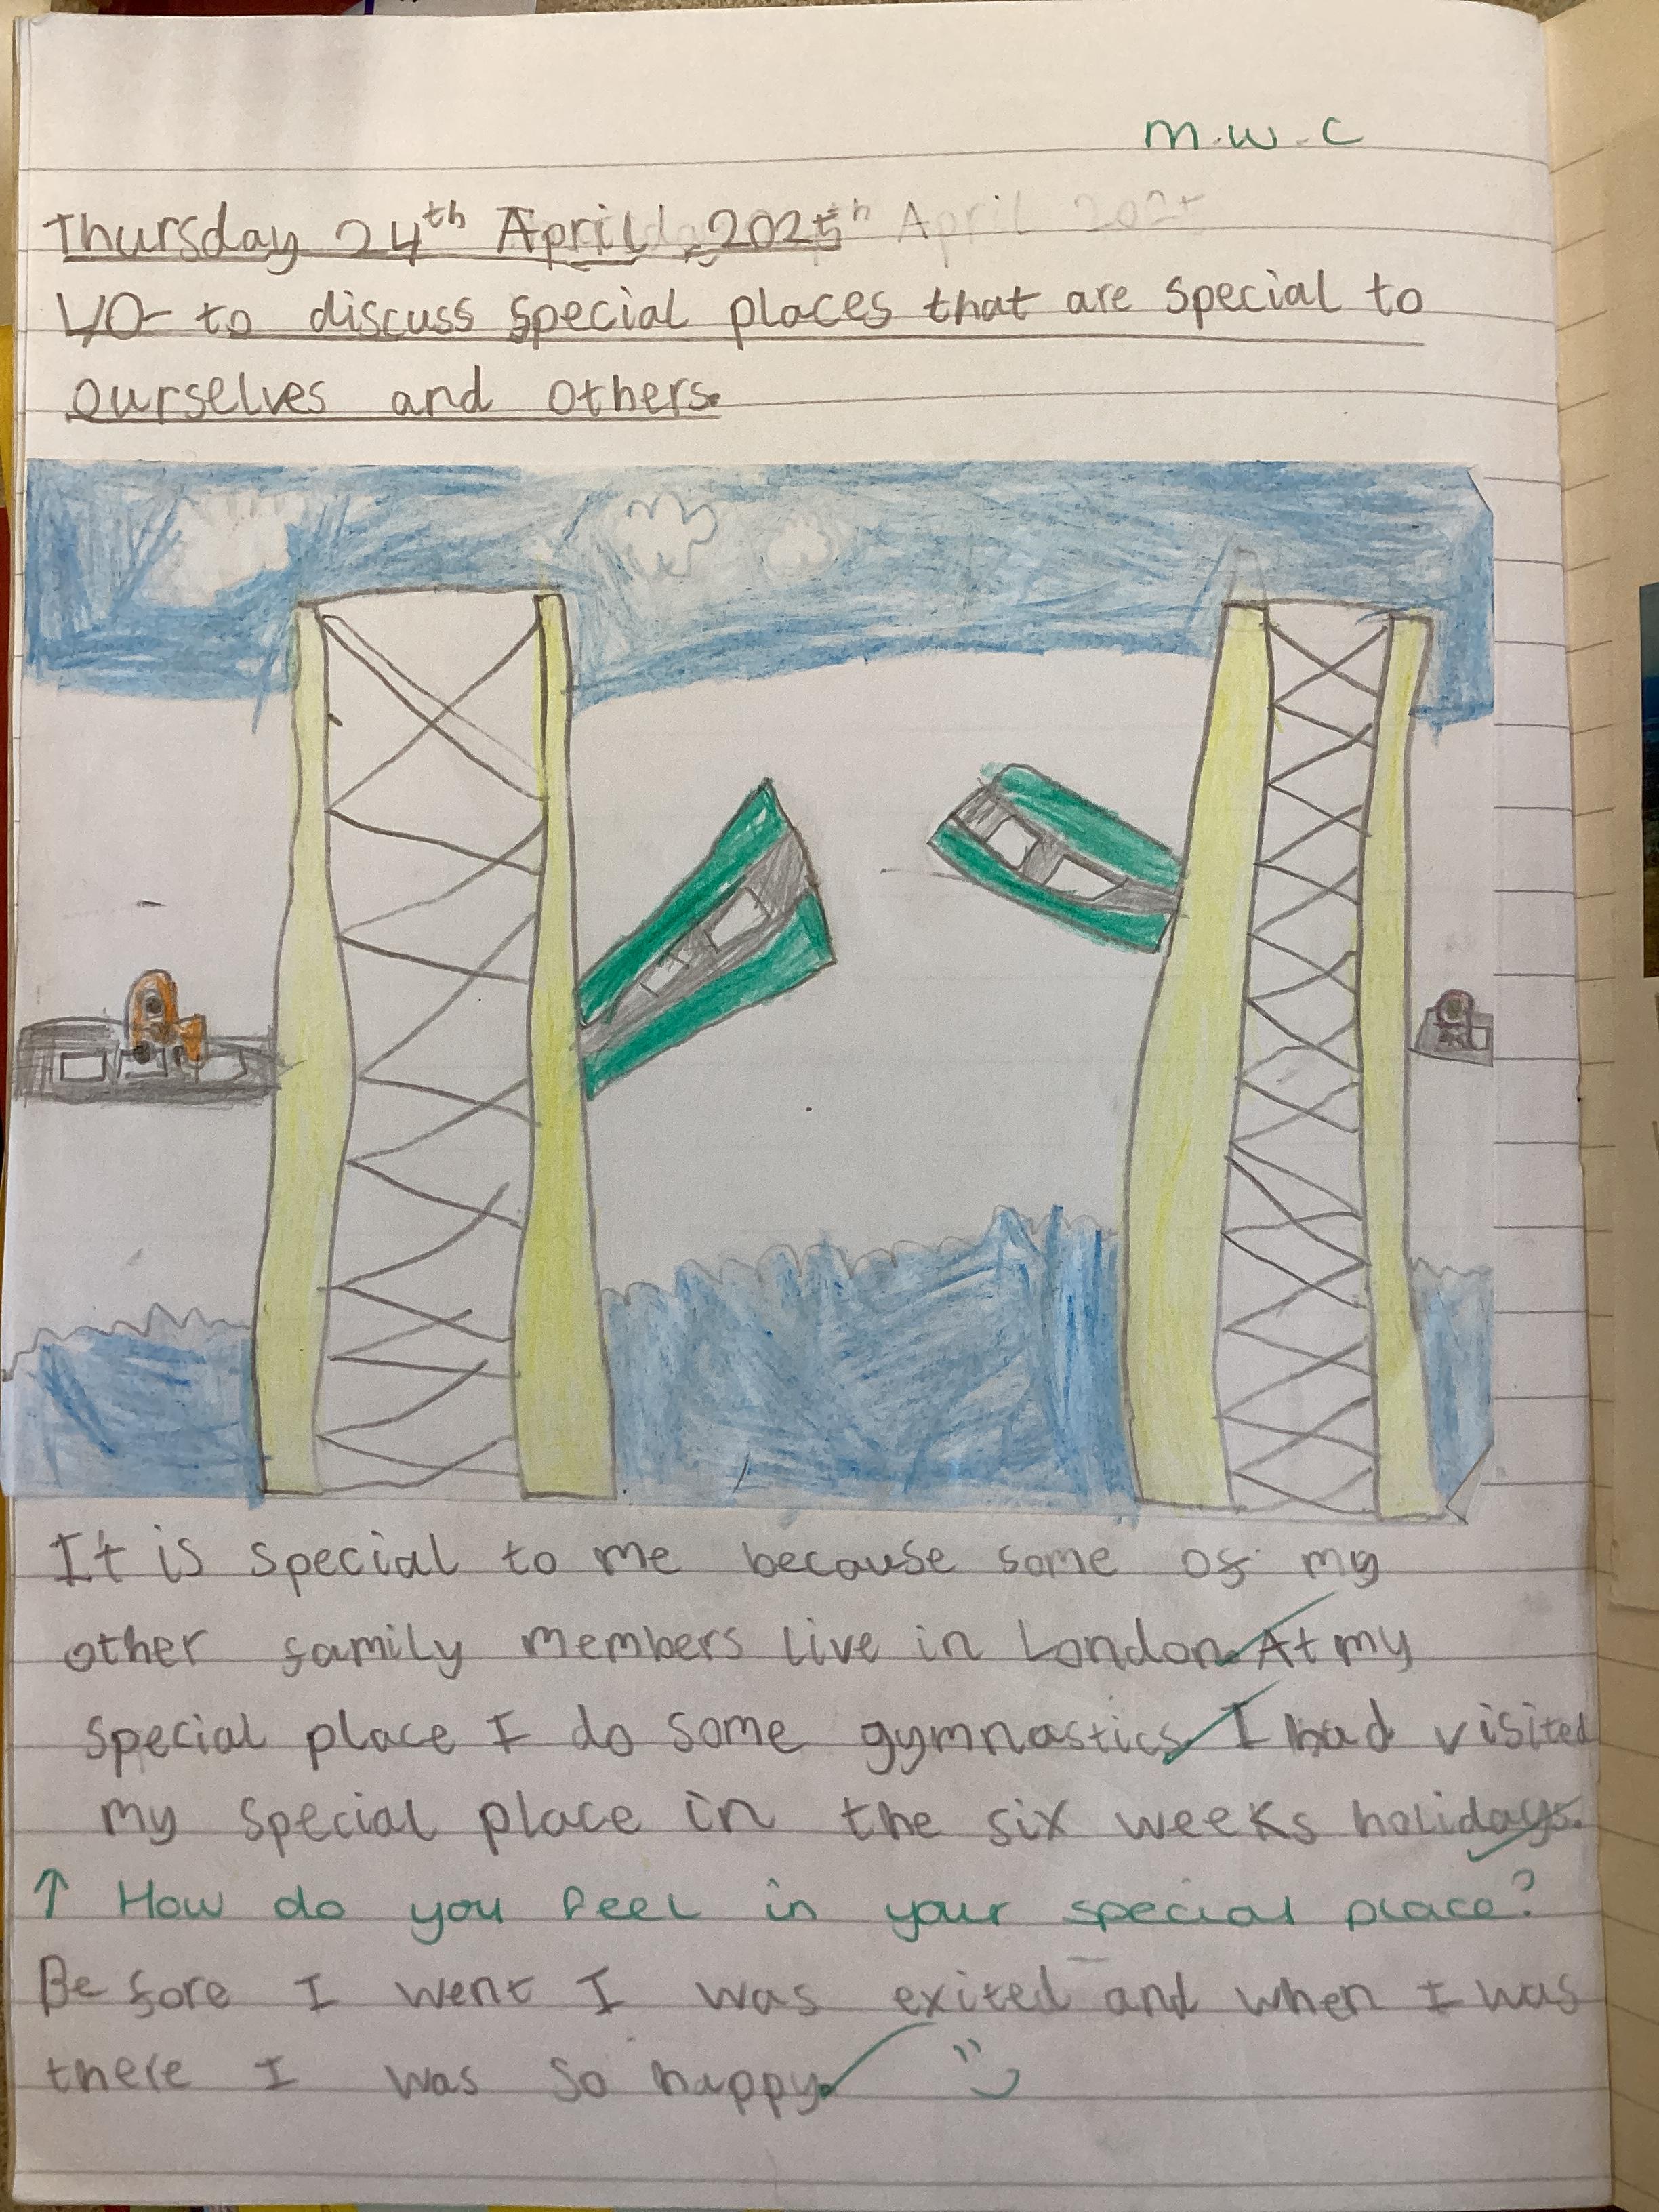 m.w.c
Thursday 24th April 2025
L/O- to discuss special places that are special to
ourselves and others.
It is special to me because some of my
other family members live in London. At my
special place I do some gymnastics. I had visited
my special place in the six weeks holidays.
↑ How do you feel in your special place?
Before I went I was exited and when I was
there I was so happy.